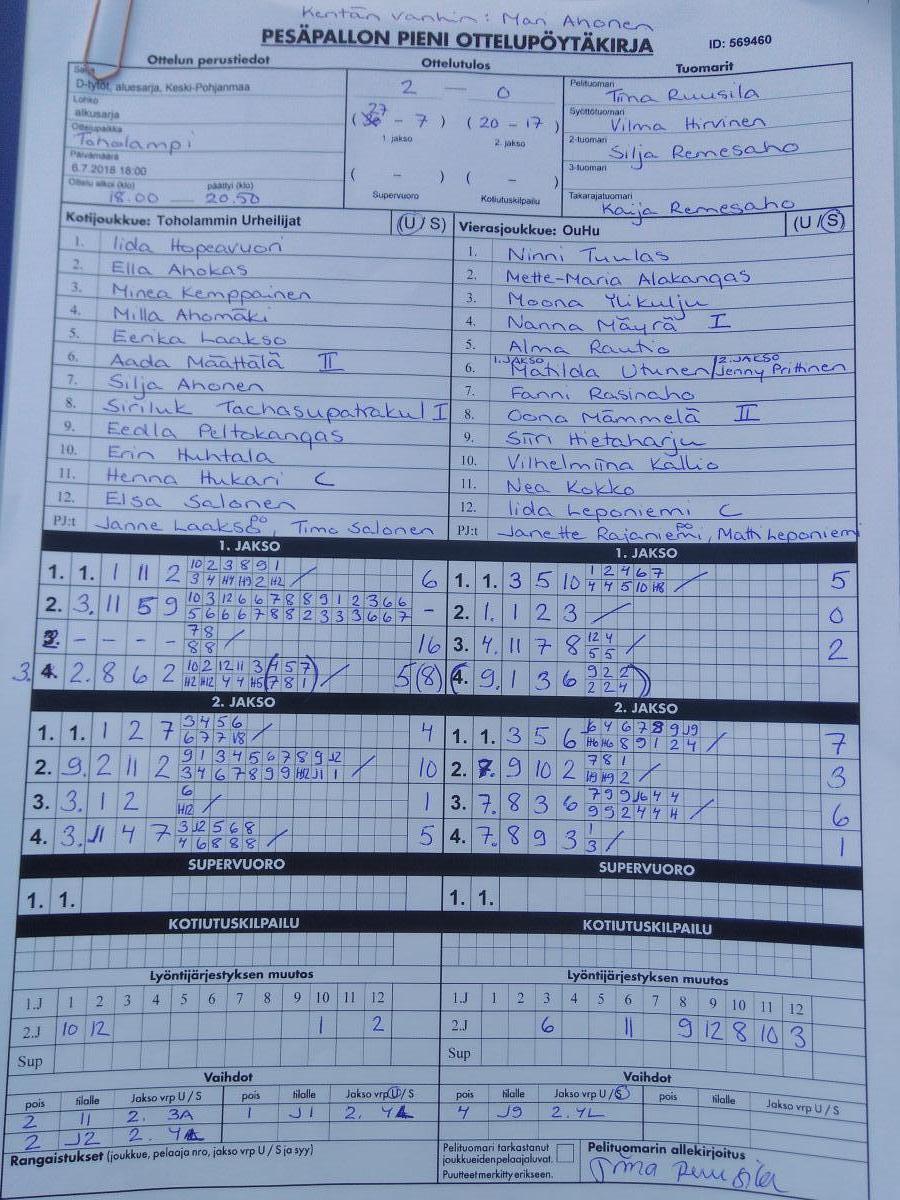 Kentän vanhin: Mari Ahonen
PESÄPALLON PIENI OTTELUPÖYTÄKIRJA ID: 569460
Ottelun perustiedot Ottelutulos Tuomarit
Sarja
D-tytöt, aluesarja, Keski-Pohjanmaa
Lohko
alkusarja
Ottelupaikka
Toholampi
Päivämäärä
6.7.2018 18:00
Ottelu alkoi (klo) päättyi (klo)
18.00 20.50
2 — 0
27
( - 7 ) ( 20 - 17 )
1. jakso 2. jakso
( - ) ( - )
Supervuoro Kotiutuskilpailu
Pelituomari
Tiina Ruusila
Syöttötuomari
Vilma Hirvinen
2-tuomari
Silja Remesaho
3-tuomari
Takarajatuomari
Kaija Remesaho
Kotijoukkue: Toholammin Urheilijat (U / S)
1. Iida Hopeavuori
2. Ella Ahokas
3. Minea Kemppainen
4. Milla Ahomäki
5. Eerika Laakso
6. Aada Määttälä II
7. Silja Ahonen
8. Siriluk Tachasupatrakul I
9. Eedla Peltokangas
10. Erin Huhtala
11. Henna Hukari C
12. Elsa Salonen
PJ:t Janne Laakso PO, Timo Salonen
Vierasjoukkue: OuHu (U / S)
1. Ninni Tuulas
2. Mette-Maria Alakangas
3. Moona Ylikulju
4. Nanna Mäyrä I
5. Alma Rautio
6. 1. JAKSO Matilda Utunen / 2. JAKSO Jenny Prittinen
7. Fanni Rasinaho
8. Oona Mämmelä II
9. Siiri Hietaharju
10. Vilhelmiina Kallio
11. Nea Kokko
12. Iida Leponiemi C
PJ:t Janette Rajaniemi PO, Matti Leponiemi
1. JAKSO
1. 1. 1 11 2 10 2 3 8 9 1 / 6
3 4 H4 H9 2 H2
2. 3. 11 5 9 10 3 12 6 6 7 8 8 9 1 2 3 6 6 -
5 6 6 6 7 8 8 2 3 3 3 6 6 7
- - - - 7 8 / 16
8 8
3. 4. 2. 8 6 2 10 2 12 11 3 (4 5 7) / 5(8)
H2 H12 4 4 H5 (7 8 1)
1. JAKSO
1. 1. 3 5 10 1 2 4 6 7 / 5
4 4 5 10 H8
2. 1. 1 2 3 / 0
3. 4. 11 7 8 12 4 / 2
5 5
(4. 9. 1 3 6 9 2 2)
2 2 4
2. JAKSO
1. 1. 1 2 7 3 4 5 6 / 4
6 7 7 V8
2. 9. 2 11 2 9 1 3 4 5 6 7 8 9 J2 / 10
3 4 6 7 8 9 9 H12 J1 1
3. 3. 1 2 6 / 1
H12
4. 3. J1 4 7 3 J2 5 6 8 / 5
4 6 8 8 8
2. JAKSO
1. 1. 3 5 6 6 4 6 7 8 9 J9 / 7
H6 H6 8 9 1 2 4
2. 7. 9 10 2 7 8 1 / 3
H9 H9 2
3. 7. 8 3 6 7 9 9 J6 4 4 / 6
9 9 2 4 4 4
4. 7. 8 9 3 1 / 1
3
SUPERVUORO
1. 1.
SUPERVUORO
1. 1.
KOTIUTUSKILPAILU
KOTIUTUSKILPAILU
Lyöntijärjestyksen muutos
1.J 1 2 3 4 5 6 7 8 9 10 11 12
2.J 10 12 1 2
Sup
Lyöntijärjestyksen muutos
1.J 1 2 3 4 5 6 7 8 9 10 11 12
2.J 6 11 9 12 8 10 3
Sup
Vaihdot
pois tilalle Jakso vrp U / S pois tilalle Jakso vrp U / S
2 11 2. 3A 1 J1 2. 4
2 J2 2. 4
Vaihdot
pois tilalle Jakso vrp U / S pois tilalle Jakso vrp U / S
4 J9 2. 4L
Rangaistukset (joukkue, pelaaja nro, jakso vrp U / S ja syy)
Pelituomari tarkastanut
joukkueiden pelaajaluvat.
Puutteet merkitty erikseen.
Pelituomarin allekirjoitus
Tiina Ruusila